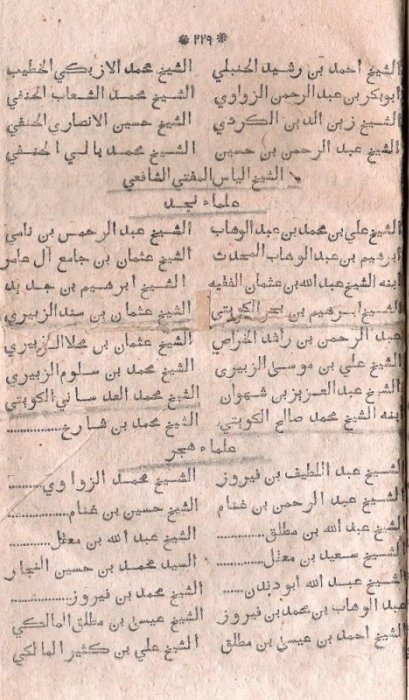 * ٢٢٩ *
الشيخ احمد بن رشيد الحنبلي الشيخ محمد الازبكي الخطيب
ابوبكر بن عبد الرحمن الزواوي الشيخ محمد الشعاب الحنفي
الشيخ زين الدين الكردي الشيخ حسين الانصاري الحنفي
الشيخ عبد الرحمن بن حسين الشيخ محمد بالي الحنفي
الشيخ الياس المفتي الشافعي
علماء نجد
الشيخ علي بن محمد بن عبد الوهاب الشيخ عبد الرحمن بن نامي
ابرهيم بن عبد الوهاب المحدث الشيخ عثمان بن جامع آل عامر
ابنه الشيخ عبد الله بن عثمان الفقيه الشيخ ابرهيم بن جديد
الشيخ ابرهيم بن بحر الكويتي الشيخ عثمان بن سند الزبيري
عبد الرحمن بن راشد الخراص الشيخ عثمان بن الزبيري
الشيخ علي بن موسى الزبيري الشيخ محمد بن سلوم الزبيري
الشيخ عبد العزيز بن شهوان الشيخ محمد العدساني الكويتي
ابنه الشيخ محمد صالح الكويتي. الشيخ محمد بن شارخ.........
علماء هجر
الشيخ عبد اللطيف بن فيروز الشيخ محمد الزواوي.........
الشيخ عبد الرحمن بن غنام الشيخ حسين بن غنام............
الشيخ عبد الله بن مطلق......... الشيخ عبد الله بن معقل.........
الشيخ سعيد بن معقل......... السيد محمد بن حسين النجار
الشيخ عبد الله ابو دبدن..... الشيخ محمد بن فيروز.........
عبد الوهاب بن محمد بن فيروز الشيخ عيسى بن مطلق المالكي
الشيخ احمد بن عيسى بن مطلق الشيخ علي بن كثير المالكي